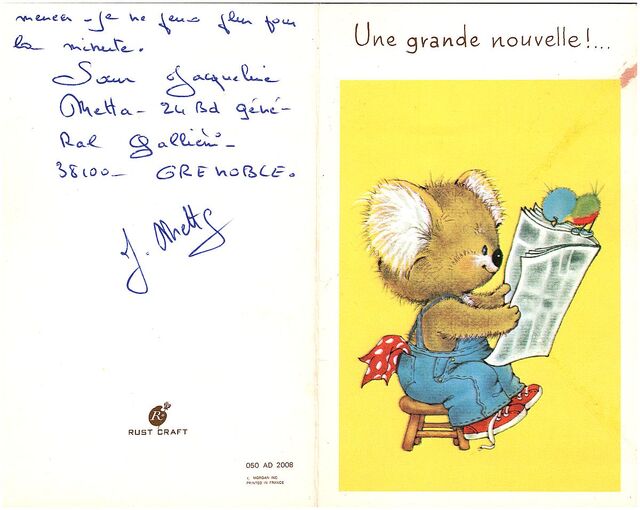 mener - je ne peux plus pour
la minute.
Sœur Jacqueline
Metta - 24 Bd géné-
ral Galliéni -
38100 - GRENOBLE.
J. Metta
RUST CRAFT
050 AD 2008
PRINTED IN FRANCE
Une grande nouvelle!...